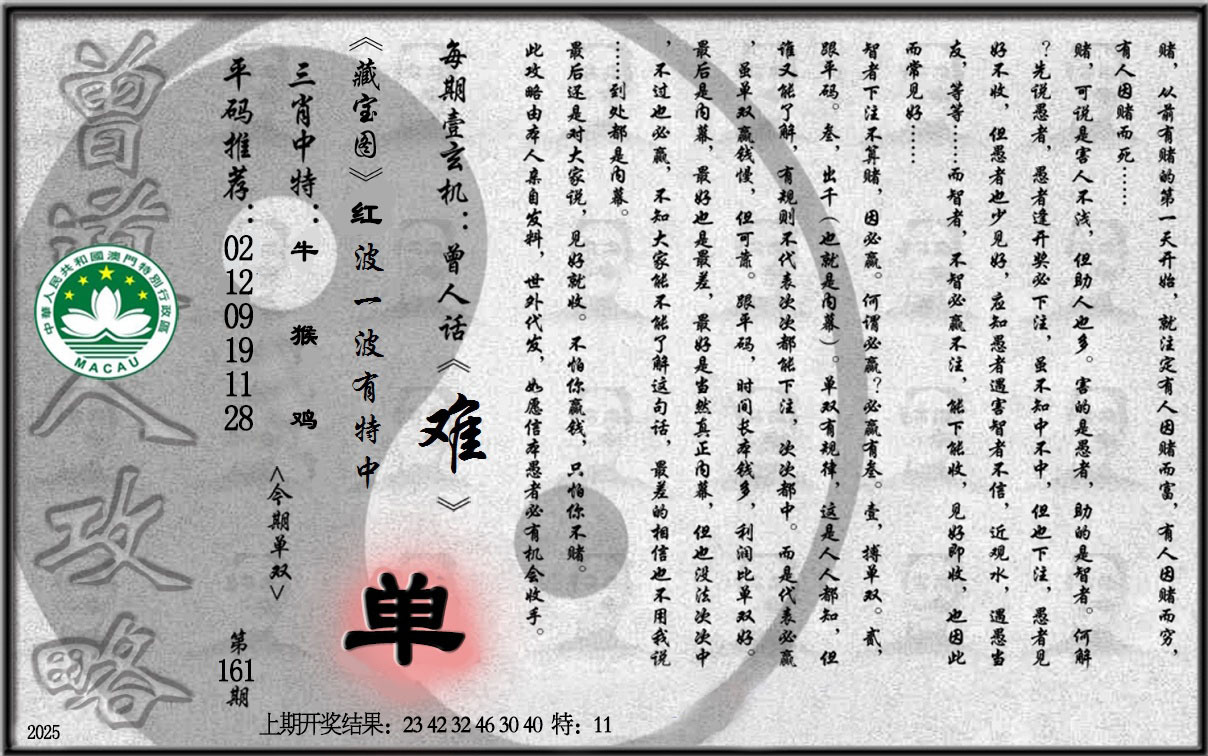 赌，从前有赌的第一天开始，就注定有人因赌而富，有人因赌而穷，
有人因赌而死……
赌，可说是害人不浅，但助人也多。害的是愚者，助的是智者。何解
？先说愚者，愚者逢开奖必下注，虽不知中不中，但也下注，愚者见
好不收，但愚者也少见好，应知愚者遇害智者不信，近观水，遇愚当
友，等等……而智者，不智必赢不注，能下能收，见好即收，也因此
而常见好……
智者下注不算赌，因必赢。何谓必赢？必赢有叁。壹，搏单双。贰，
跟平码。叁，出千（也就是内幕）。单双有规律，这是人人都知，但
谁又能了解，有规则不代表次次都能下注，次次都中。而是代表必赢
，虽单双赢钱慢，但可靠。跟平码，时间长本钱多，利润比单双好。
最后是内幕，最好也是最差，最好是当然真正内幕，但也没法次次中
，不过也必赢，不知大家能不能了解这句话，最差的相信也不用我说
……到处都是内幕。
最后还是对大家说，见好就收。不怕你赢钱，只怕你不赌。
此攻略由本人亲自发料，世外代发，如愿信本愚者必有机会收手。
每期壹玄机：曾人话《难》
《藏宝图》红波一波有特中
单
三肖中特：牛 猴 鸡
<今期单双>
平码推荐：02 12 09 19 11 28
第161期
曾道人攻略
中華人民共和國澳門特別行政區
MACAU
上期开奖结果：23 42 32 46 30 40 特：11
2025